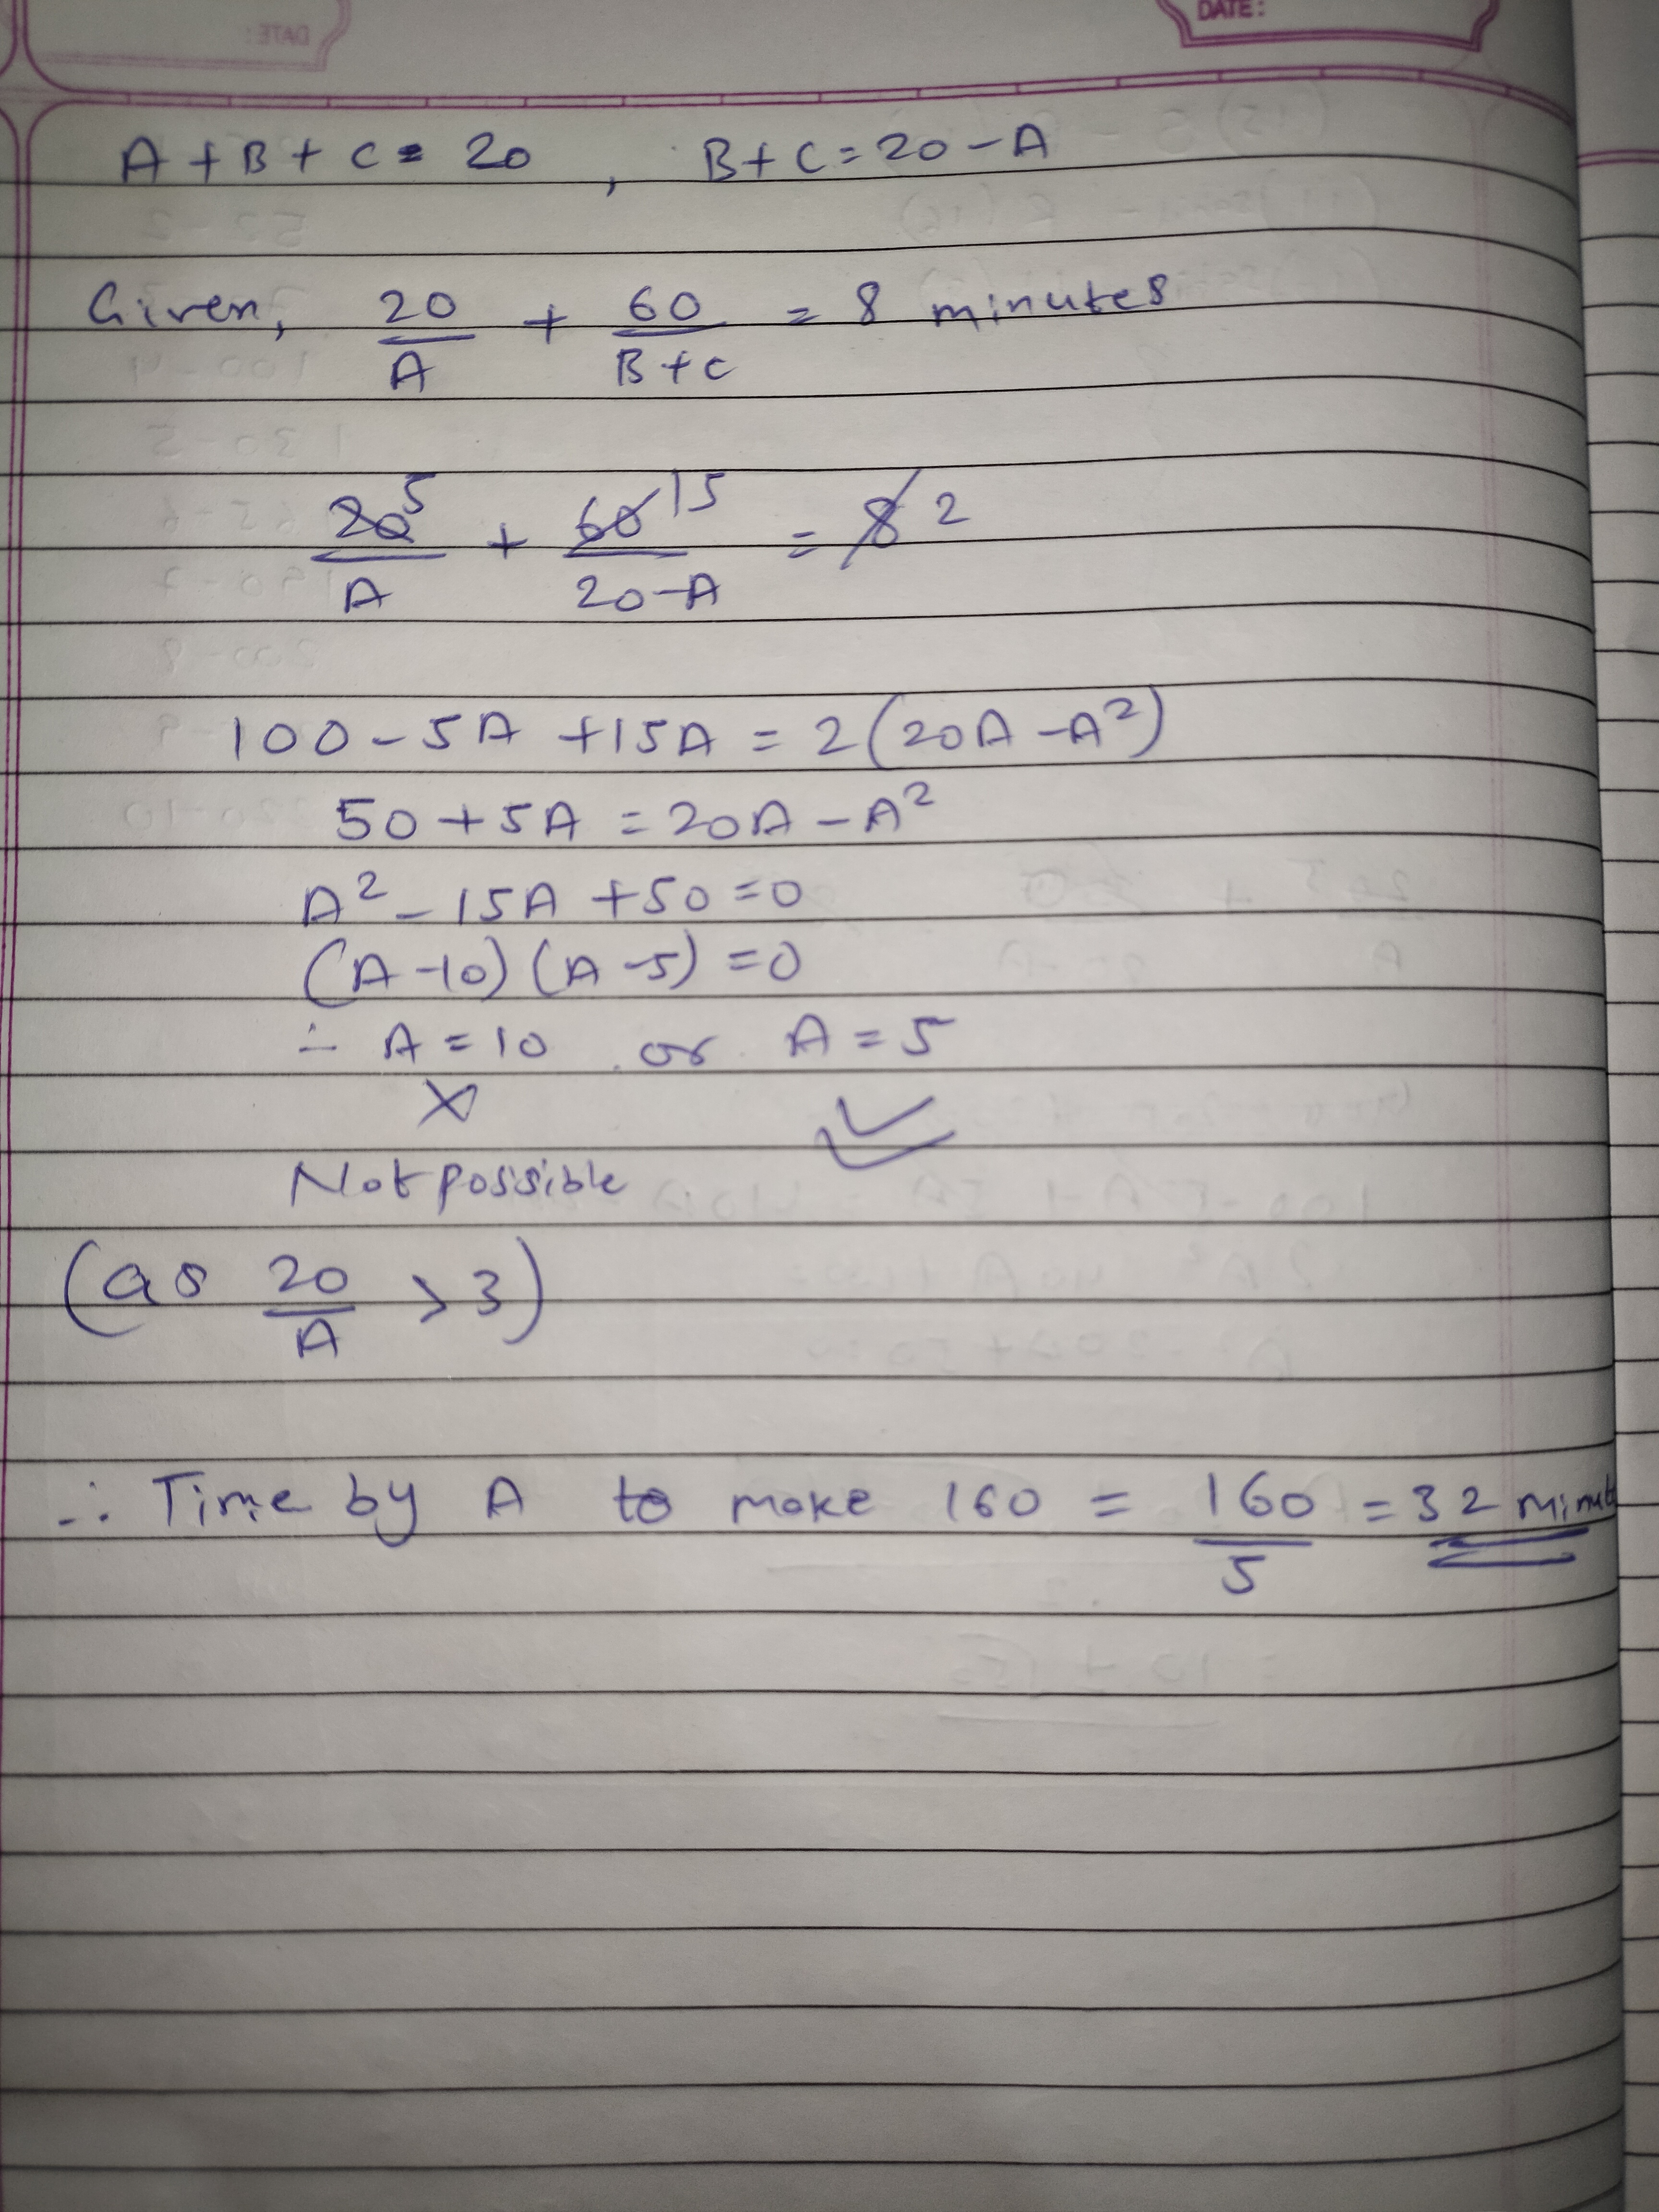 DATE:
A + B + C = 20 , B + C = 20 - A
Given, 20/A + 60/B+C = 8 minutes
20 5/A + 60 15/20-A = 8 2
100 - 5A + 15A = 2(20A - A²)
50 + 5A = 20A - A²
A² - 15A + 50 = 0
(A - 10) (A - 5) = 0
∴ A = 10 or A = 5
X
Not possible
(as 20/A > 3)
∴ Time by A to make 160 = 160/5 = 32 minut